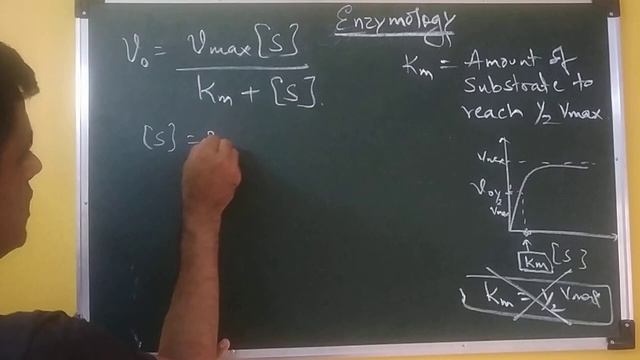 Enzymology
V₀ = Vmax [S]
Km + [S].
[S] =
Km = Amount of
Substrate to
reach ½ Vmax
Vmax
V₀ ½
Vmax
Km [S]
Km = ½ Vmax